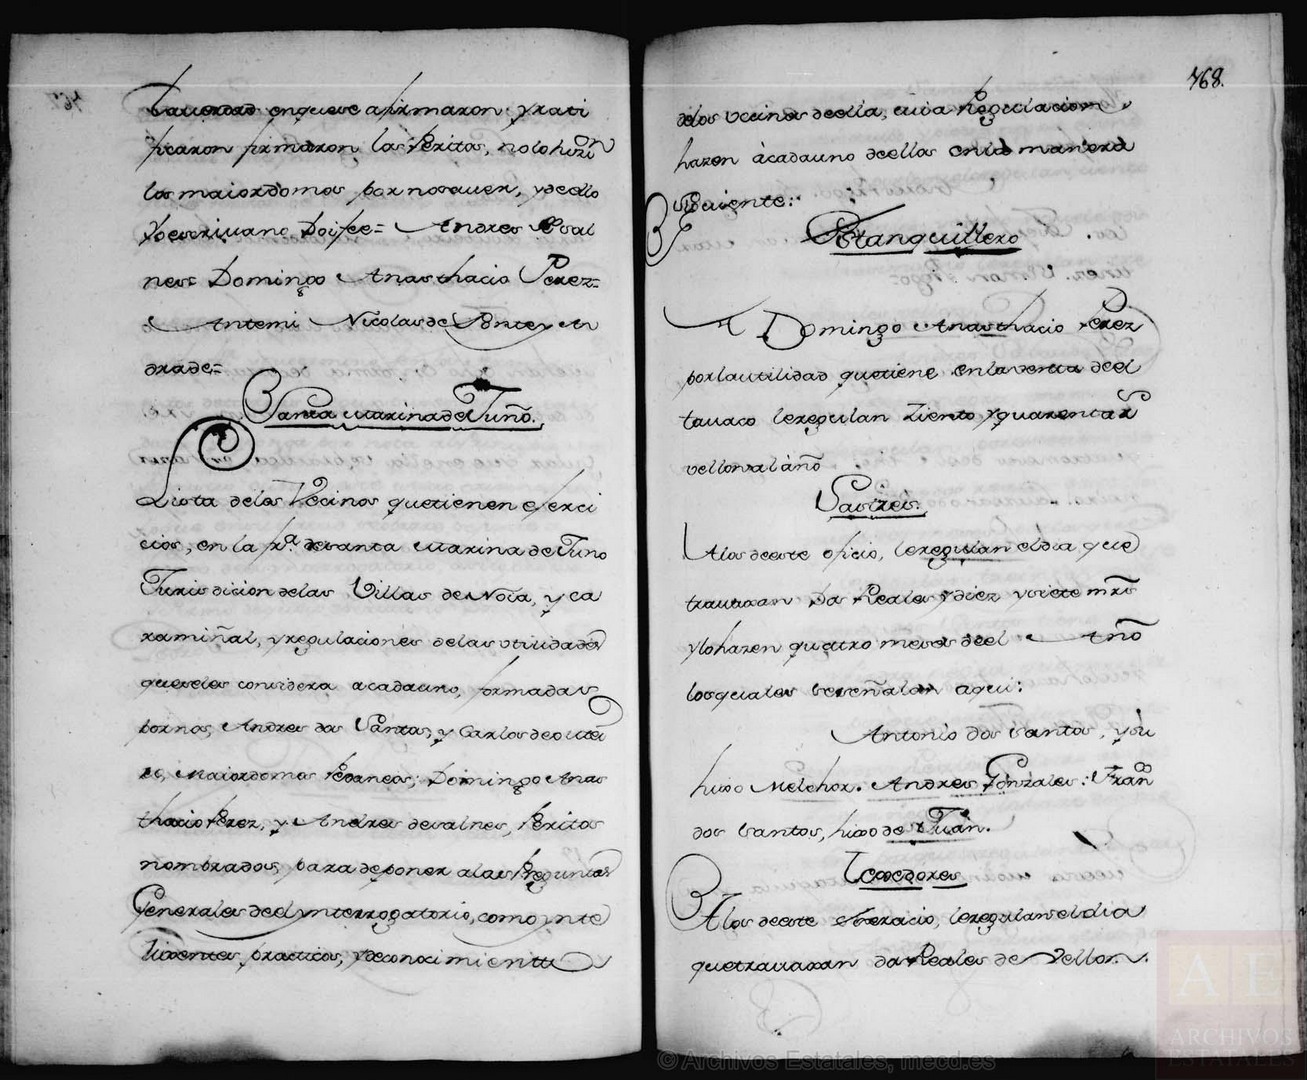 la verdad en que se afirmaron: y rati
ficaron firmaron los Peritos, no lo hizien
los maiordomos por no saver, y de ello
Yo escrivano Doi fee= Andres de sal
nes= Domingo Anasthacio Perez=
Antemi Nicolas de Ponte y An
drade=
Santa Marina de Juño.
Lista de los Vecinos que tienen exerci
cios, en la fra. de santa Marina de Juno
Jurisdicion de las Villas de Noia, y ca
ramiñal, y regulaciones de las utilidades
que se les considera a cada uno, formadas
por nos, Andres dos Santos, y Carlos de outei
ro, Maiordomos Pedaneos; Domingo Anas
thacio Perez, y Andres de salnes, Peritos
nombrados, para deponer a las Preguntas
Generales de el ynterrogatorio, como ynte
lixentes, practicos, y de conocimiento
768.
de los vecinos de ella, cuia Regulacion
hazen à cada uno de ellos en la manera
siguiente:
Estanquillero
A Domingo Anasthacio Perez
por la utilidad que tiene en la venta de el
tavaco le regulan ziento y quarenta rs
vellon al año
Sastres.
A los de este oficio, le regulan el dia que
travaxan Dos Reales y diez y siete mrs
y lo hazen quatro meses de el Año
los quales se señalan aqui:
Antonio dos santos, y su
hixo Melchor. Andres Gonzales: Fran
dos santos, hixo de Juan.
Texedores
A los de este Exercicio, le regulan el dia
que travaxan dos Reales de Vellon.
© Archivos Estatales, mecd.es
AE
ARCHIVOS
ESTATALES